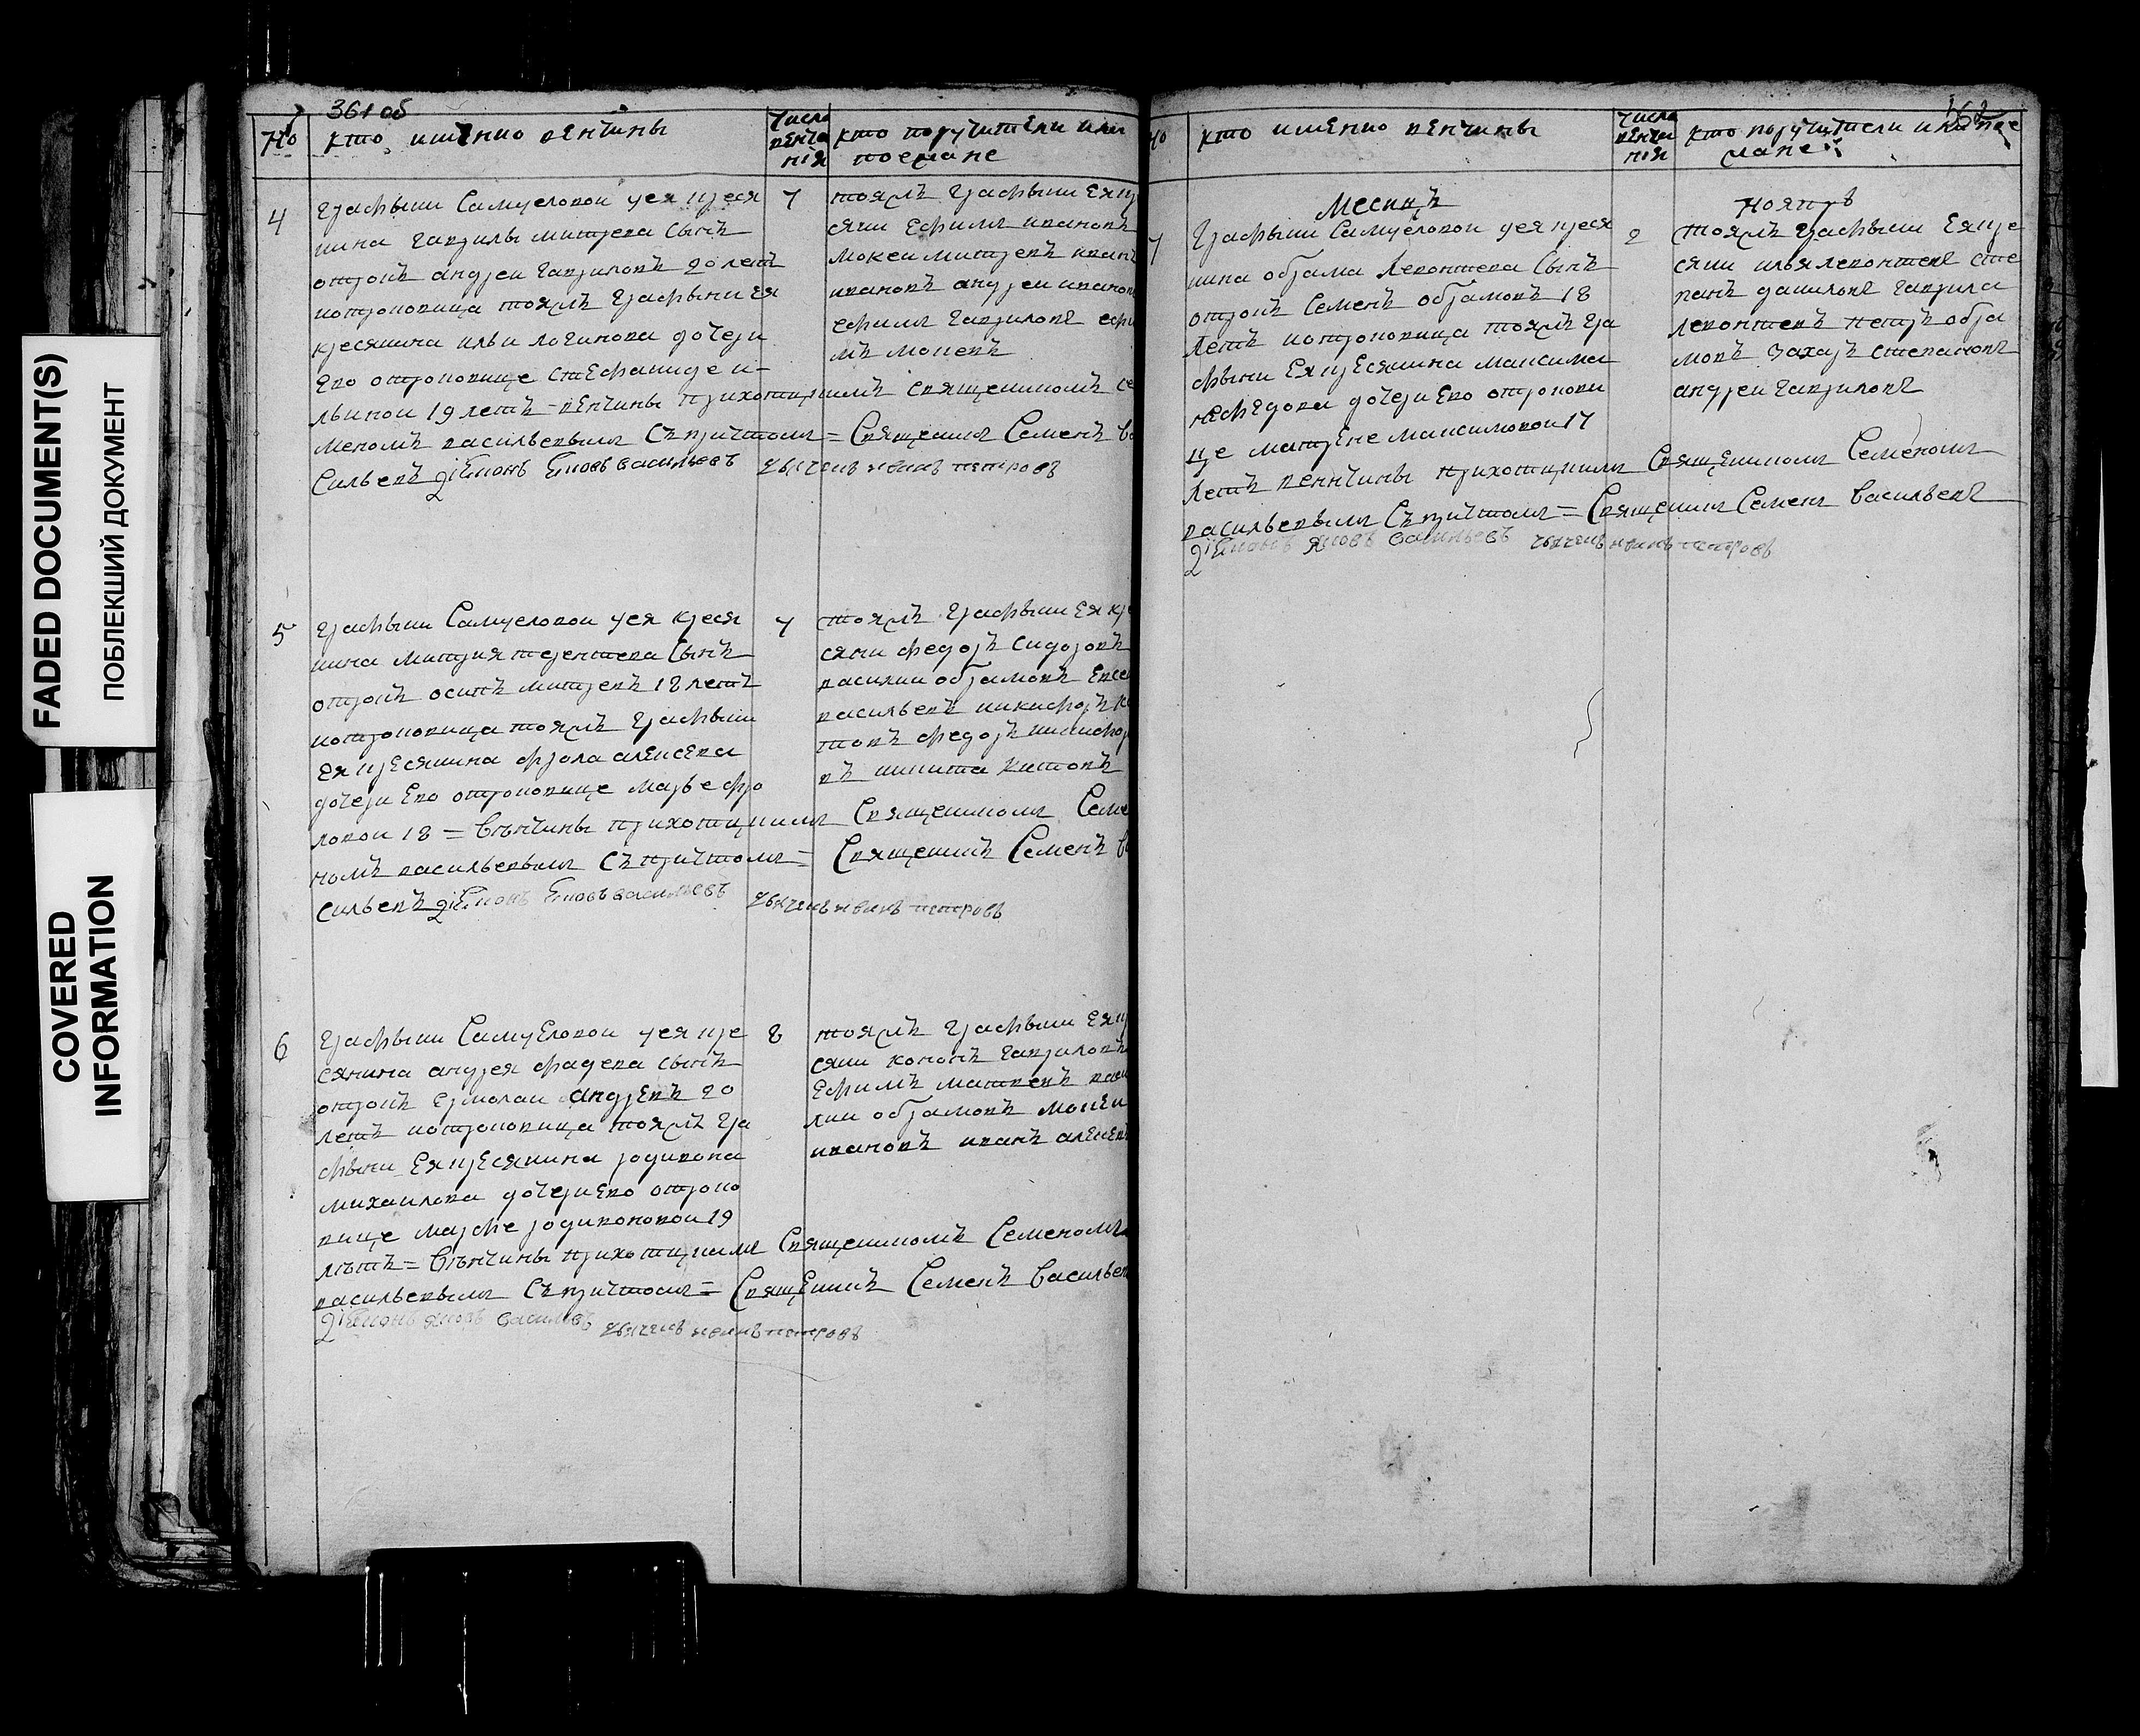 FADED DOCUMENT(S)
ПОБЛЕКШИЙ ДОКУМЕНТ
COVERED
INFORMATION
361 об
No
кто именно венчины
числа
венча
нiя
кто поручители или
поезжане
4
графыни Самуеловой уея крея
нина гаврилы митрева сынъ
отрокъ андреи гавриловъ 20 летъ
котроковица тояжъ графыни ея
кресянина ильи логинова дочери
Ево отроковице стефаниде и-
льиной 19 летъ - венчины приходцкимъ священникомъ се
меномъ васильевымъ Съ причтомъ = Священникъ Семенъ ва
Сильевъ дiяконъ Яковъ васильевъ дьячекъ иванъ петровъ
7
тояжъ графыни ея кр
сяни ефимъ ивановъ
мокеи митревъ иванъ
ивановъ андреи иванов
ефимъ гавриловъ ефи
мъ мокевъ
5
графыни Самуеловой уея креся
нина митрия терентева сынъ
отрокъ осипъ митревъ 18 летъ
котроковица тояжъ графыни
ея кресянина фрола алексева
дочери Ево отроковице марье фро
ловой 18 = венчины приходцкимъ Священникомъ Семе
номъ васильевымъ Съ причтомъ = Священникъ Семенъ ва
сильевъ дiяконъ Яковъ васильевъ дьячекъ иванъ петровъ
7
тояжъ графыни ея кре
сяни федоръ сидоровъ
василии обрамовъ Евсе
васильевъ никифоръ ки
товъ федоръ никифор
въ никита китовъ
6
графыни Самуеловой уея кре
сянина андрея фадева сынъ
отрокъ ермолаи андревъ 20
летъ котроковица тояжъ гра
фыни Ея кресянина родивона
михаилова дочери Ево отроко
вице марфе родивоновой 19
летъ = Венчины приходцкимъ Священникомъ Семеномъ
васильевымъ Съ причтомъ = Священникъ Семенъ Васильев
дiяконъ яковъ васильевъ дьячекъ иванъ петровъ
8
тояжъ графыни ея кр
сяни кононъ гавриловъ
Ефимъ матвевъ васи
лии обрамовъ мокеи
ивановъ иванъ алексевъ
362
но
кто именно венчины
числа
венча
нiя
кто поручители или пое
жане
Месицъ
ноябръ
7
графыни Самуеловой уея креся
нина обрама левонтева Сынъ
отрокъ Семенъ обрамовъ 18
летъ котроковица тояжъ гра
фыни Ея кресянина максима
нефедова дочери Ево отрокови
це матрене максимовой 17
летъ венчины приходцкимъ Священникомъ Семеномъ
васильевымъ Съ причтомъ = Священникъ Семенъ Васильевъ
дiяконъ яковъ васильевъ дьячекъ иванъ петровъ
2
тояжъ графыни Ея кре
сяни илья левонтевъ сте
панъ даниловъ гаврила
левонтевъ петръ обра
мовъ захаръ степановъ
андреи гавриловъ